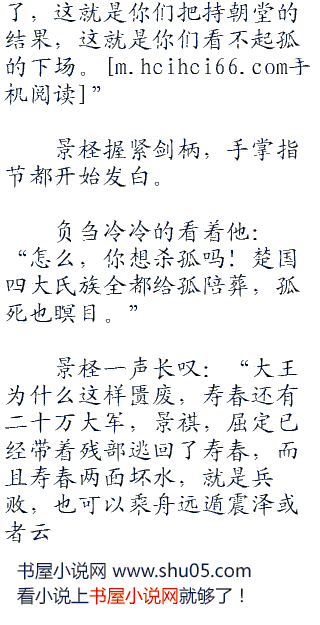 了，这就是你们把持朝堂的
结果，这就是你们看不起孤
的下场。[m.hcihci66.com手
机阅读]”
景柽握紧剑柄，手掌指
节都开始发白。
负刍冷冷的看着他：
“怎么，你想杀孤吗！楚国
四大氏族全都给孤陪葬，孤
死也瞑目。”
景柽一声长叹：“大王
为什么这样匮废，寿春还有
二十万大军，景祺，屈定已
经带着残部逃回了寿春，而
且寿春两面坏水，就是兵
败，也可以乘舟远遁震泽或
者云
书屋小说网 www.shu05.com
看小说上书屋小说网就够了！